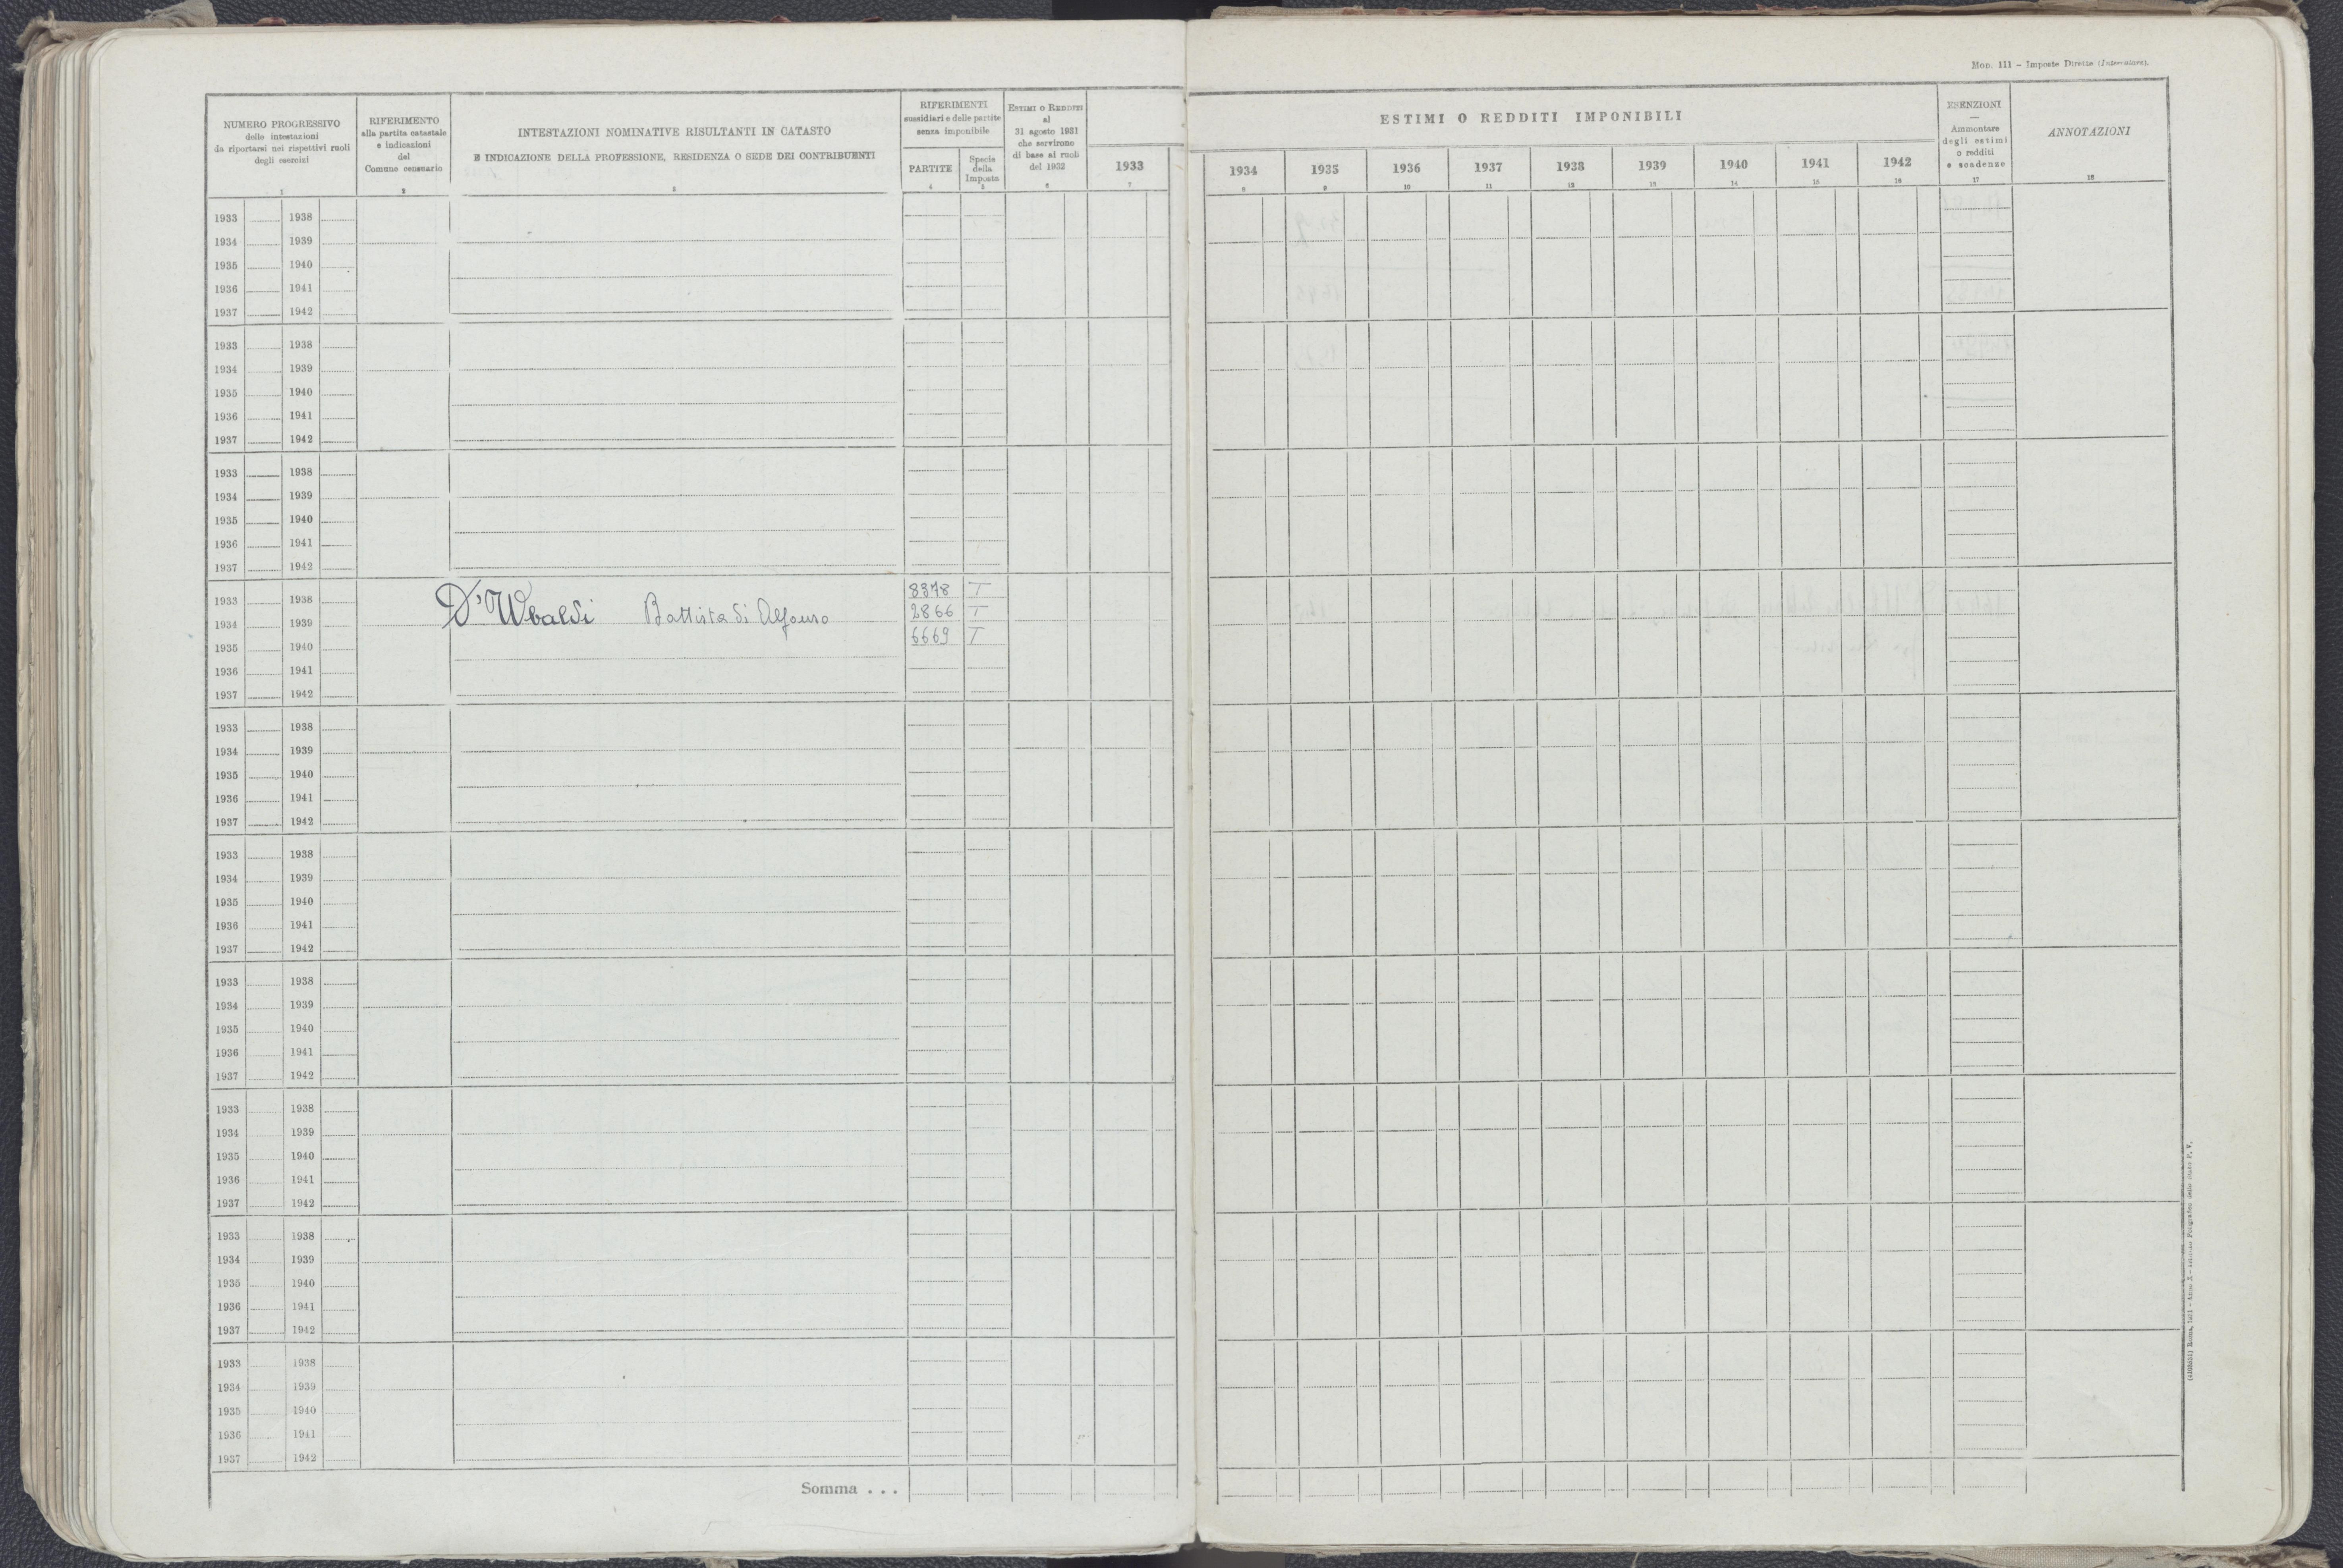 Mod. 111 – Imposte Dirette (Intercalare).
NUMERO PROGRESSIVO
delle intestazioni
da riportarsi nei rispettivi ruoli
degli esercizi
1
RIFERIMENTO
alla partita catastale
e indicazioni
del
Comune censuario
2
INTESTAZIONI NOMINATIVE RISULTANTI IN CATASTO
E INDICAZIONE DELLA PROFESSIONE, RESIDENZA O SEDE DEI CONTRIBUENTI
3
RIFERIMENTI
sussidiari e delle partite
senza imponibile
PARTITE
4
Specie
della
Imposta
5
ESTIMI O REDDITI
al
31 agosto 1931
che servirono
di base ai ruoli
del 1932
6
1933
7
ESTIMI O REDDITI IMPONIBILI
1934
8
1935
9
1936
10
1937
11
1938
12
1939
13
1940
14
1941
15
1942
16
ESENZIONI
—
Ammontare
degli estimi
o redditi
e scadenze
17
ANNOTAZIONI
18
1933 1938
1934 1939
1935 1940
1936 1941
1937 1942
1933 1938
1934 1939
1935 1940
1936 1941
1937 1942
1933 1938
1934 1939
1935 1940
1936 1941
1937 1942
1933 1938 8378 T
1934 1939 D'Ubaldi Battista di Alfonso 2866 T
1935 1940 6669 T
1936 1941
1937 1942
1933 1938
1934 1939
1935 1940
1936 1941
1937 1942
1933 1938
1934 1939
1935 1940
1936 1941
1937 1942
1933 1938
1934 1939
1935 1940
1936 1941
1937 1942
1933 1938
1934 1939
1935 1940
1936 1941
1937 1942
1933 1938
1934 1939
1935 1940
1936 1941
1937 1942
1933 1938
1934 1939
1935 1940
1936 1941
1937 1942
Somma . . .